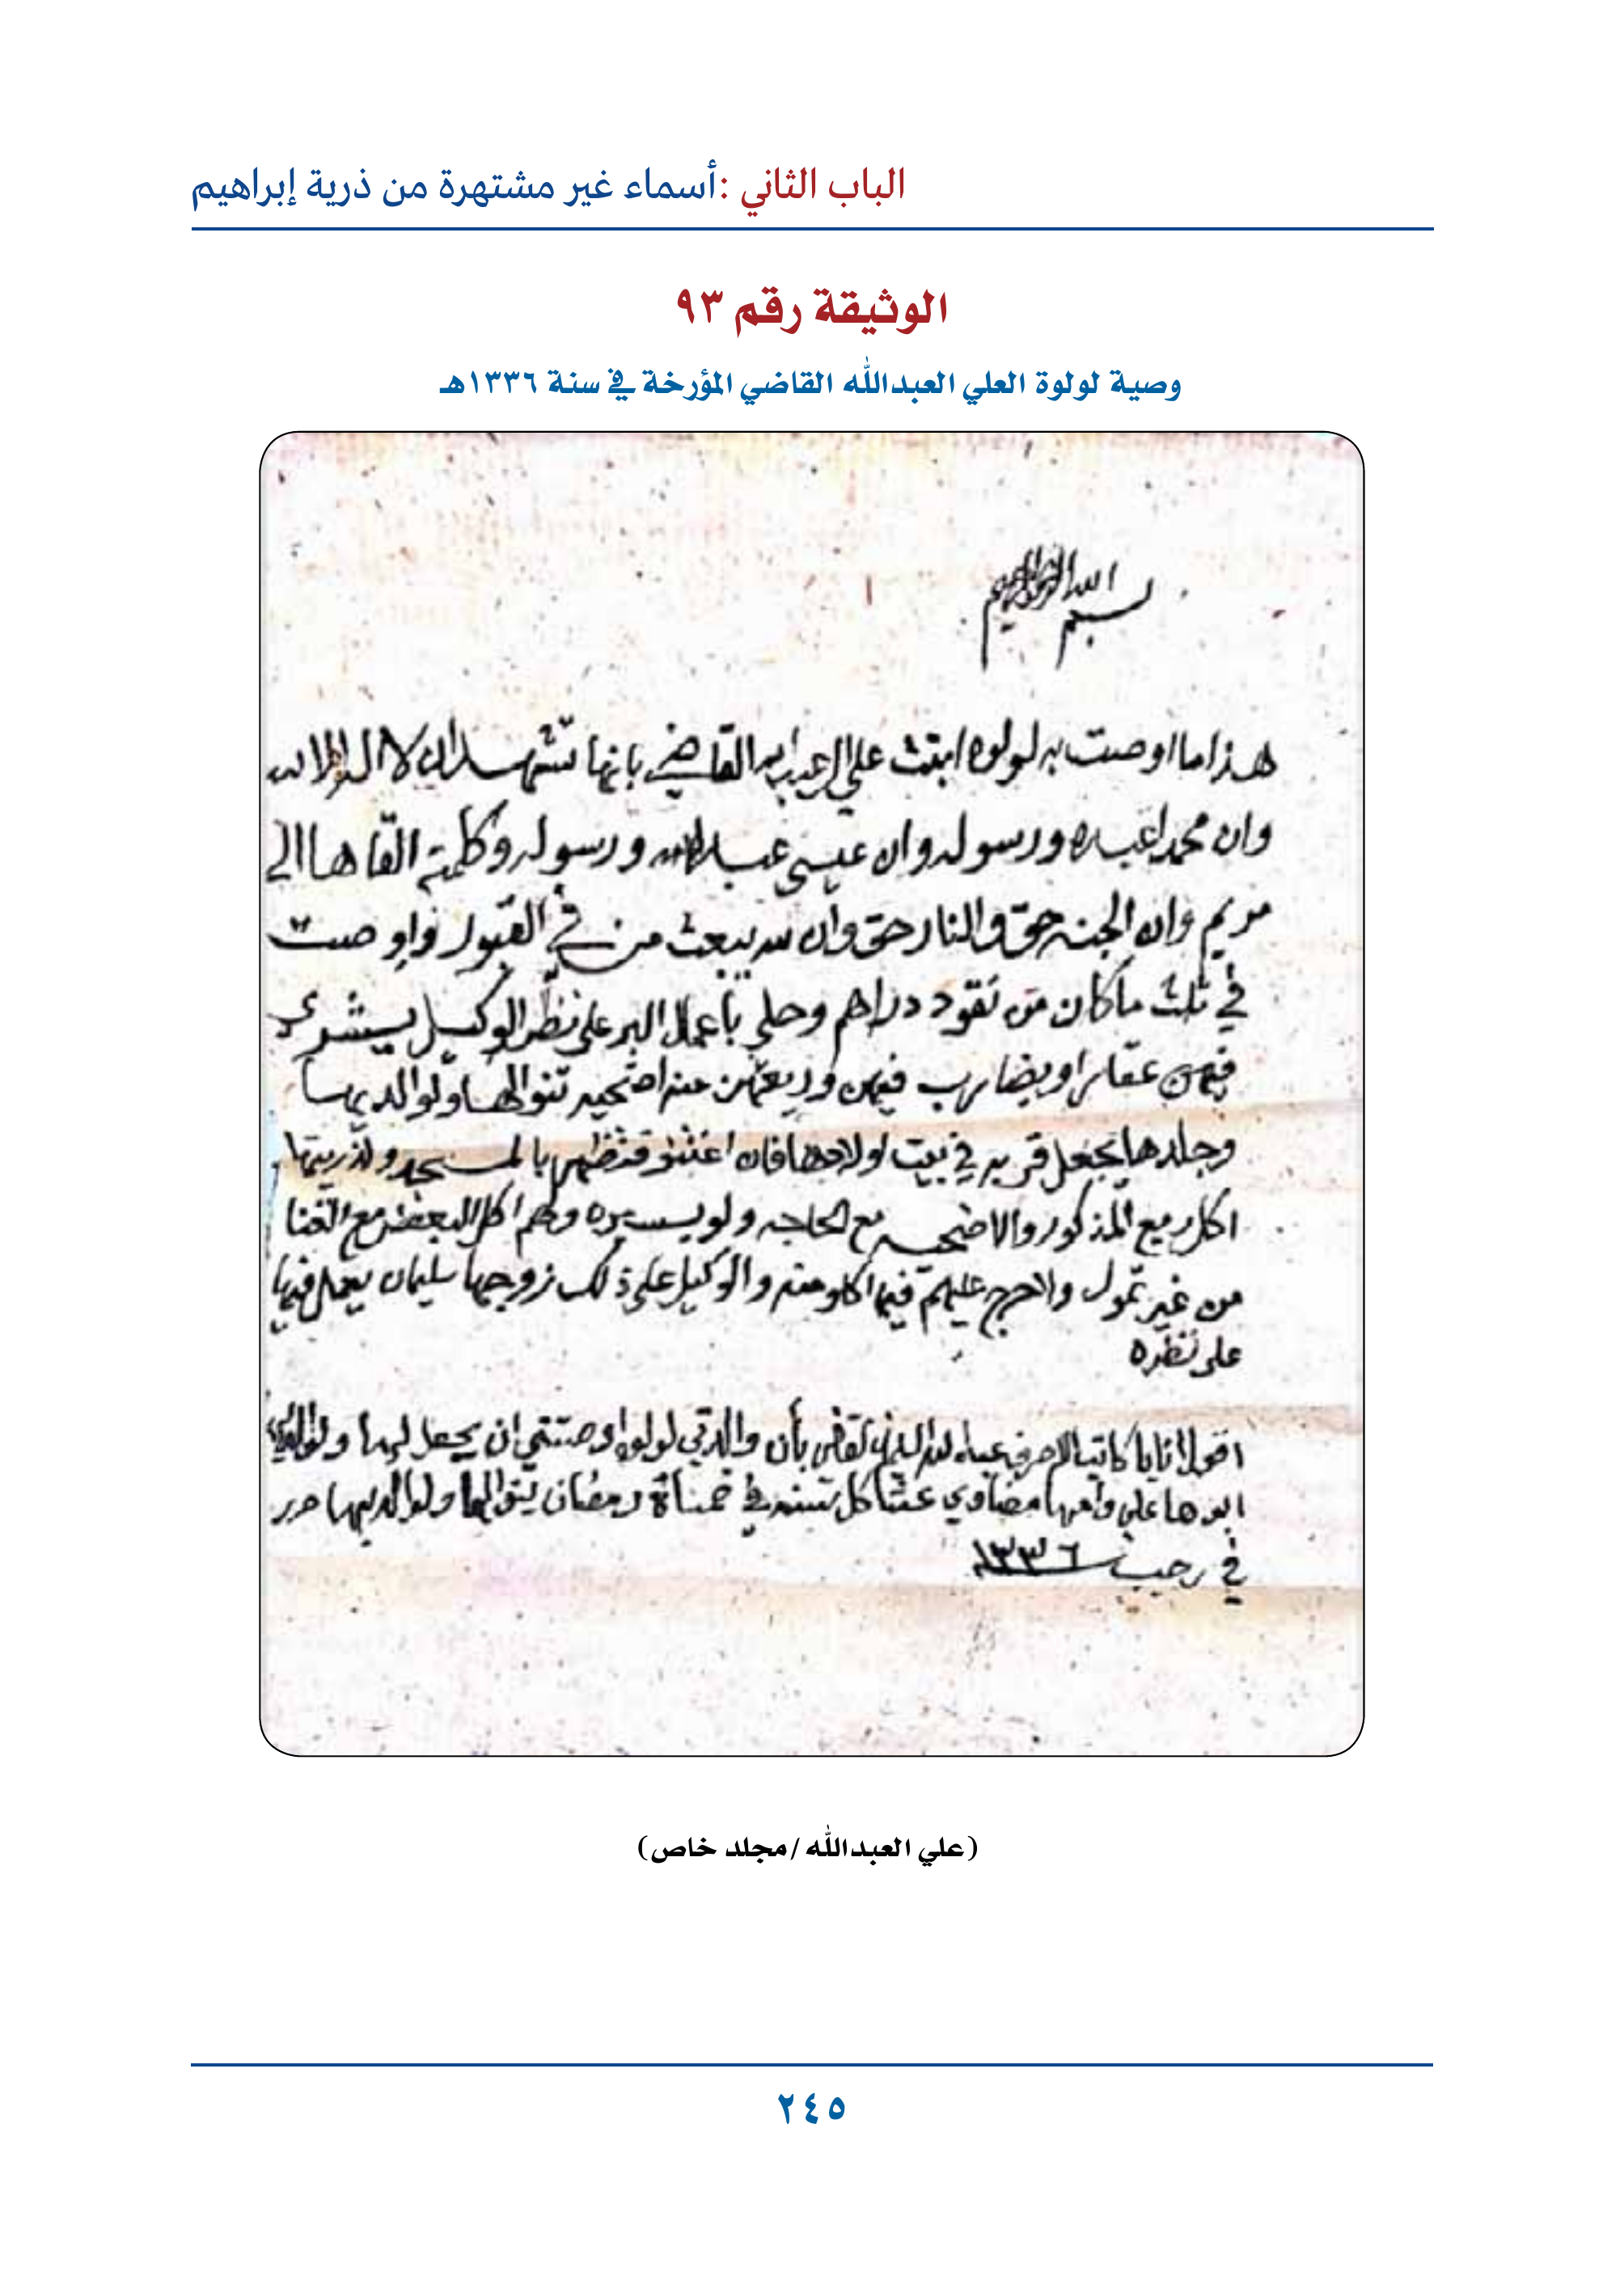 الباب الثاني :أسماء غير مشتهرة من ذرية إبراهيم
الوثيقة رقم ٩٣
وصية لولوة العلي العبدالله القاضي المؤرخة في سنة ١٣٣٦هـ
بسم الله الرحمن الرحيم
هذا ما اوصت به لولوه ابنت علي العبدالله القاضي بانها تشهد ان لا اله الا الله
وان محمدا عبده ورسوله وان عيسى عبدالله ورسوله وكلمته القاها الى
مريم وان الجنه حق والنار حق وان الله يبعث من في القبور واوصت
في ثلث ما كان من نقود دراهم وحلي بأعمال البر على نظر الوكيل يشري
فيهن عقار او يضارب فيهن وريعهن منه اضحيه تنوا لها ولوالديها
وجلدها يجعل قربه في بيت اولادها فان اغتنو بالمسجد ولذريتها
اكل ريع المذكور والاضحيه مع الحاجه ولو يسيره ولهم اكل البعض مع الغنا
من غير تمول ولا حرج عليهم فيما اكلو منه والوكيل على ذلك زوجها سليمان يعمل فيها
على نظره
اقول انا يا كاتب الاحرف عبدالله السليمان القاضي بأن والدتي لولوا وصتني ان يجعل لها
ابوها علي وامها مضاوي عشا كل سنه في رمضان ينوا لهما ولوالديهما حرر
في رجب ١٣٣٦
(علي العبدالله/مجلد خاص)
٢٤٥